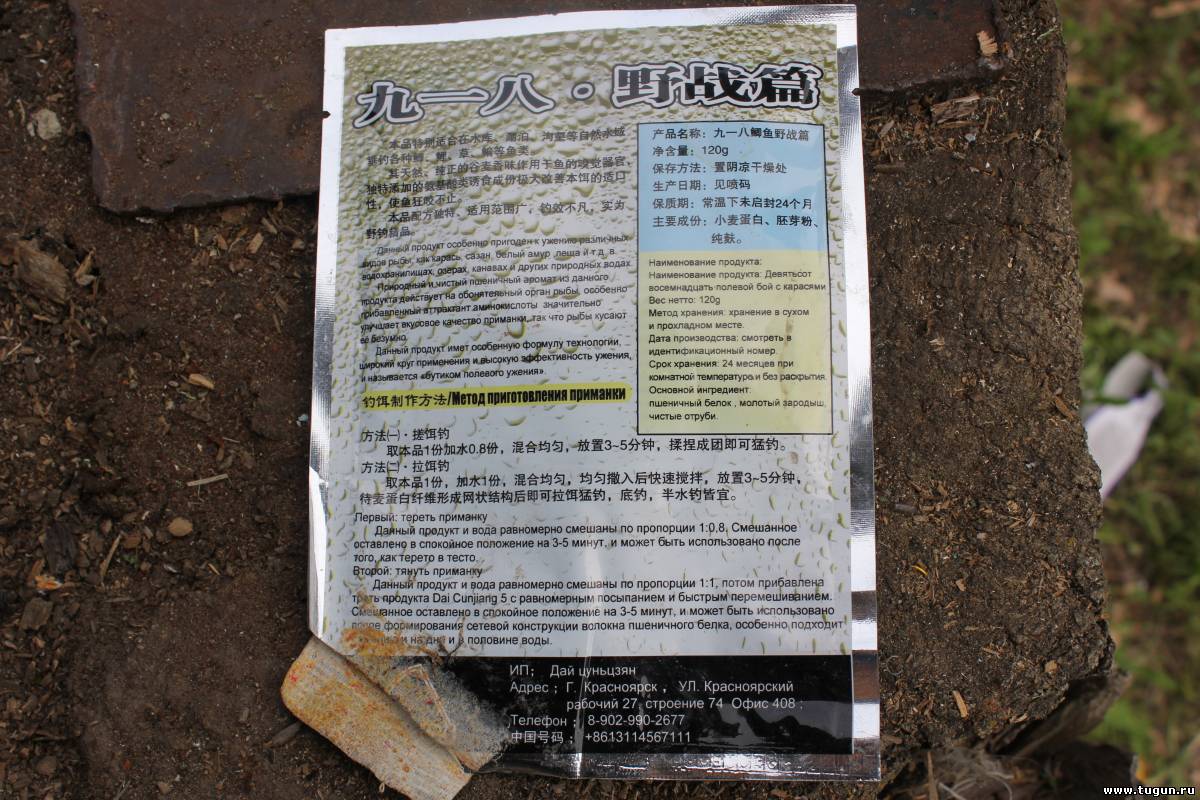 九一八·野战篇
本品特别适合在水库、湖泊、沟渠等自然水域
垂钓各种鲫、鲤、草、鳊等鱼类。
其天然、纯正的谷麦香味作用于鱼的嗅觉器官
独特添加的氨基酸类诱食成份极大改善本饵的适口
性，使鱼狂咬不止。
本品配方独特，适用范围广，钓效不凡，实为
野钓精品。
Данный продукт особенно пригоден к ужению различных
видов рыбы, как карась, сазан, белый амур, леша и т.д. в
водохранилищах, озерах, канавах и других природных водах
Природный и чистый пшеничный аромат из данного
продукта действует на обонятельный орган рыбы, особенно
прибавленный аттрактант аминокислоты значительно
улучшает вкусовое качество приманки, так что рыбы кусают
её безумно.
Данный продукт имет особенную формулу технологии,
широкий круг применения и высокую эффективность ужения,
и называется «бутиком полевого ужения».
产品名称：九一八鲫鱼野战篇
净含量：120g
保存方法：置阴凉干燥处
生产日期：见喷码
保质期：常温下未启封24个月
主要成份：小麦蛋白、胚芽粉、
纯麸。
Наименование продукта:
Наименование продукта: Девятьсот
восемнадцать полевой бой с карасями
Вес нетто: 120g
Метод хранения: хранение в сухом
и прохладном месте.
Дата производства: смотреть в
идентификационный номер.
Срок хранения: 24 месяцев при
комнатной температуре и без раскрытия.
Основной ингредиент:
пшеничный белок , молотый зародыш,
чистые отруби.
钓饵制作方法/Метод приготовления приманки
方法㈠·搓饵钓
取本品1份加水0.8份，混合均匀，放置3~5分钟，揉捏成团即可猛钓。
方法㈡·拉饵钓
取本品1份，加水1份，混合均匀，均匀撒入后快速搅拌，放置3~5分钟，
待麦蛋白纤维形成网状结构后即可拉饵猛钓，底钓，半水钓皆宜。
Первый: тереть приманку
Данный продукт и вода равномерно смешаны по пропорции 1:0,8. Смешанное
оставлено в спокойное положение на 3-5 минут, и может быть использовано после
того, как терето в тесто.
Второй: тянуть приманку
Данный продукт и вода равномерно смешаны по пропорции 1:1, потом прибавлена
треть продукта Dai Cunjiang 5 с равномерным посыпанием и быстрым перемешиванием.
Смешанное оставлено в спокойное положение на 3-5 минут, и может быть использовано
после формирования сетевой конструкции волокна пшеничного белка, особенно подходит
и на дне и в половине воды.
ИП； Дай цуньцзян
Адрес；Г. Красноярск , УЛ. Красноярский
рабочий 27, строение 74 Офис 408；
Телефон； 8-902-990-2677
中国号码；+8613114567111
www.tugun.ru